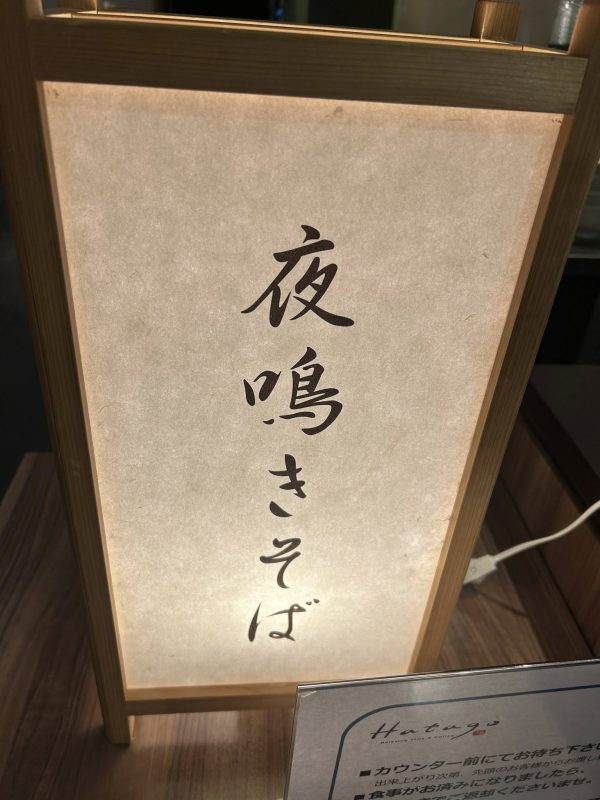 夜鳴きそば
Hatago
■カウンター前にてお待ち下さい
出来上がり次第、先頭のお客様からお渡し
■食事がお済みになりましたら、
ご返却くださいませ。